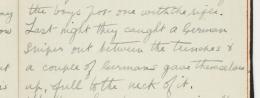 the boys for one with the rifle.
Last night they caught a German
sniper out between the trenches &
a couple of Germans gave themselves
up, full to the neck of it.